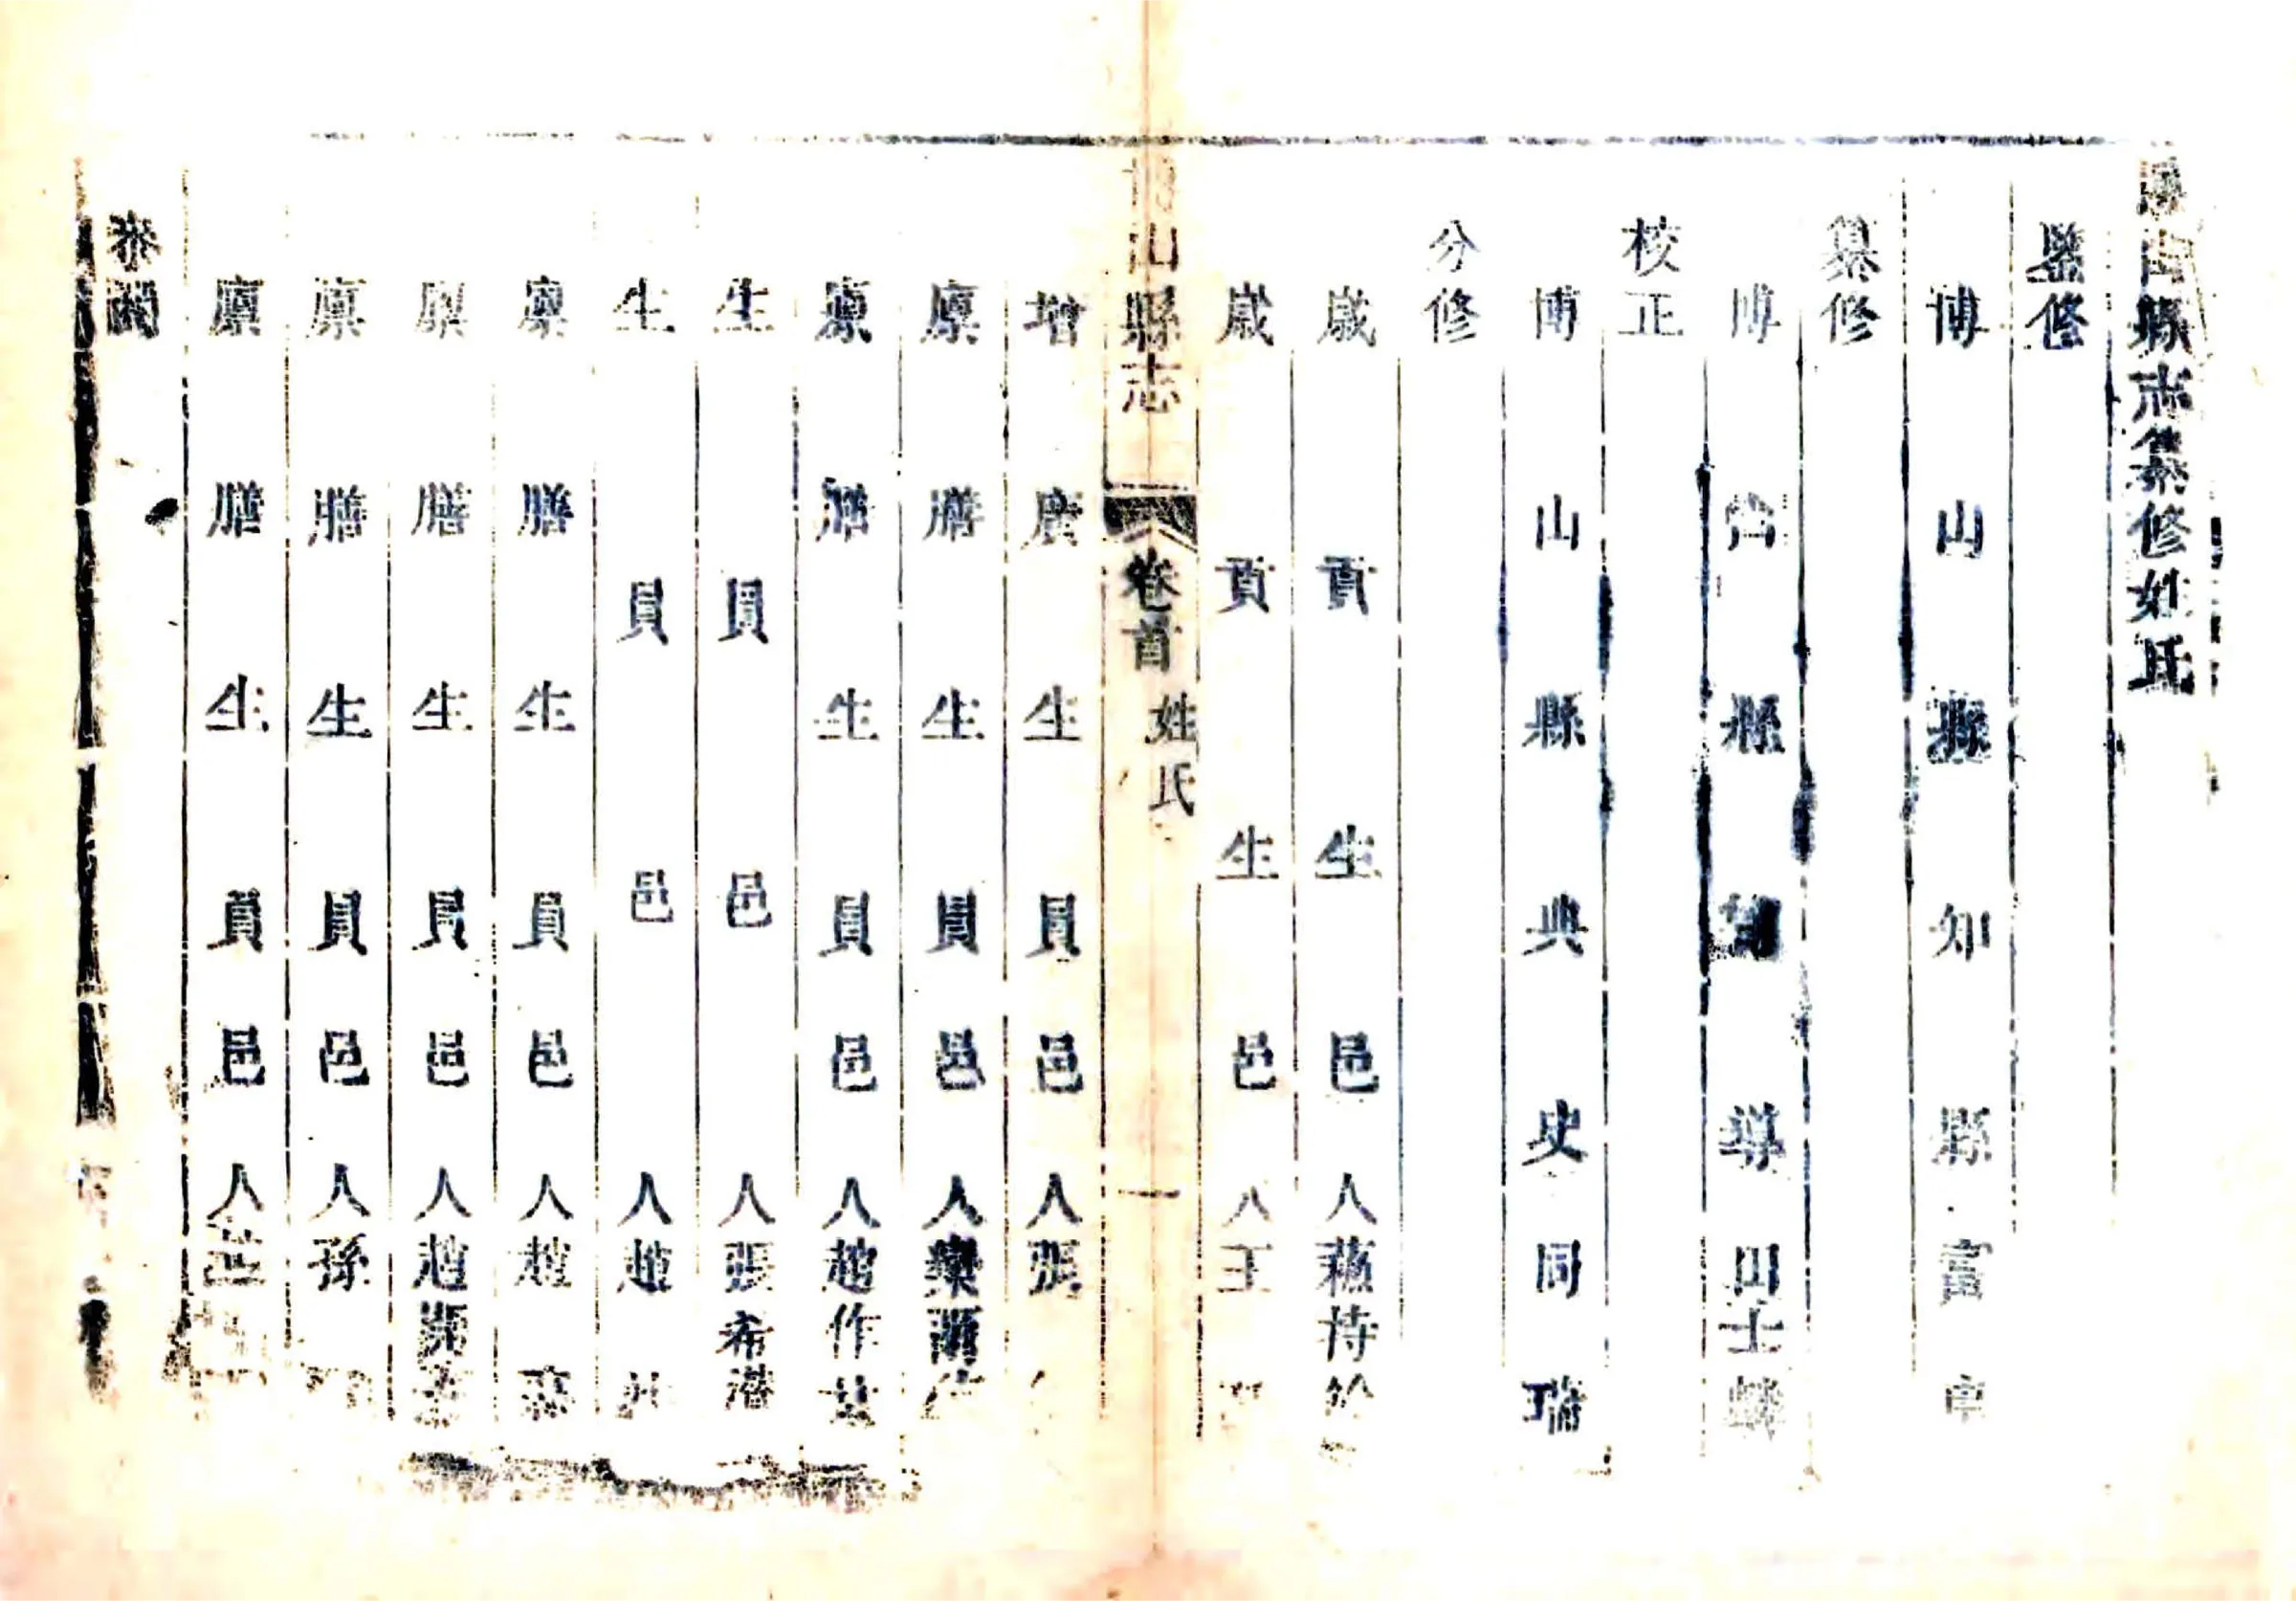 博山縣志纂修姓氏
監修
博山縣知縣富申
纂修
博山縣訓導田士麟
校正
博山縣典史同瑞
分修
歲貢生邑人蘓持
歲貢生邑人王
博山縣志 卷首 姓氏 一
增廣生員邑人張
廩膳生員邑人欒
廩膳生員邑人趙作
生員邑人張希潜
生員邑人趙
廩膳生員邑人趙
廩膳生員邑人趙
廩膳生員邑人孫
廩膳生員邑人
參閱